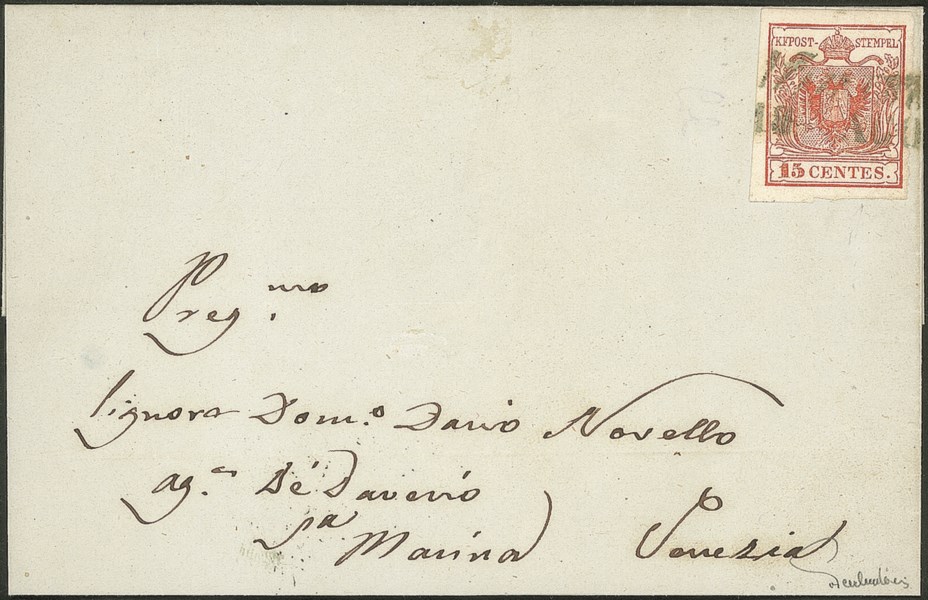 KKPOST-STEMPEL
15 CENTES.
Preg.mo
Signora Dom.o Dario Novello
ag.
Marina Venezia